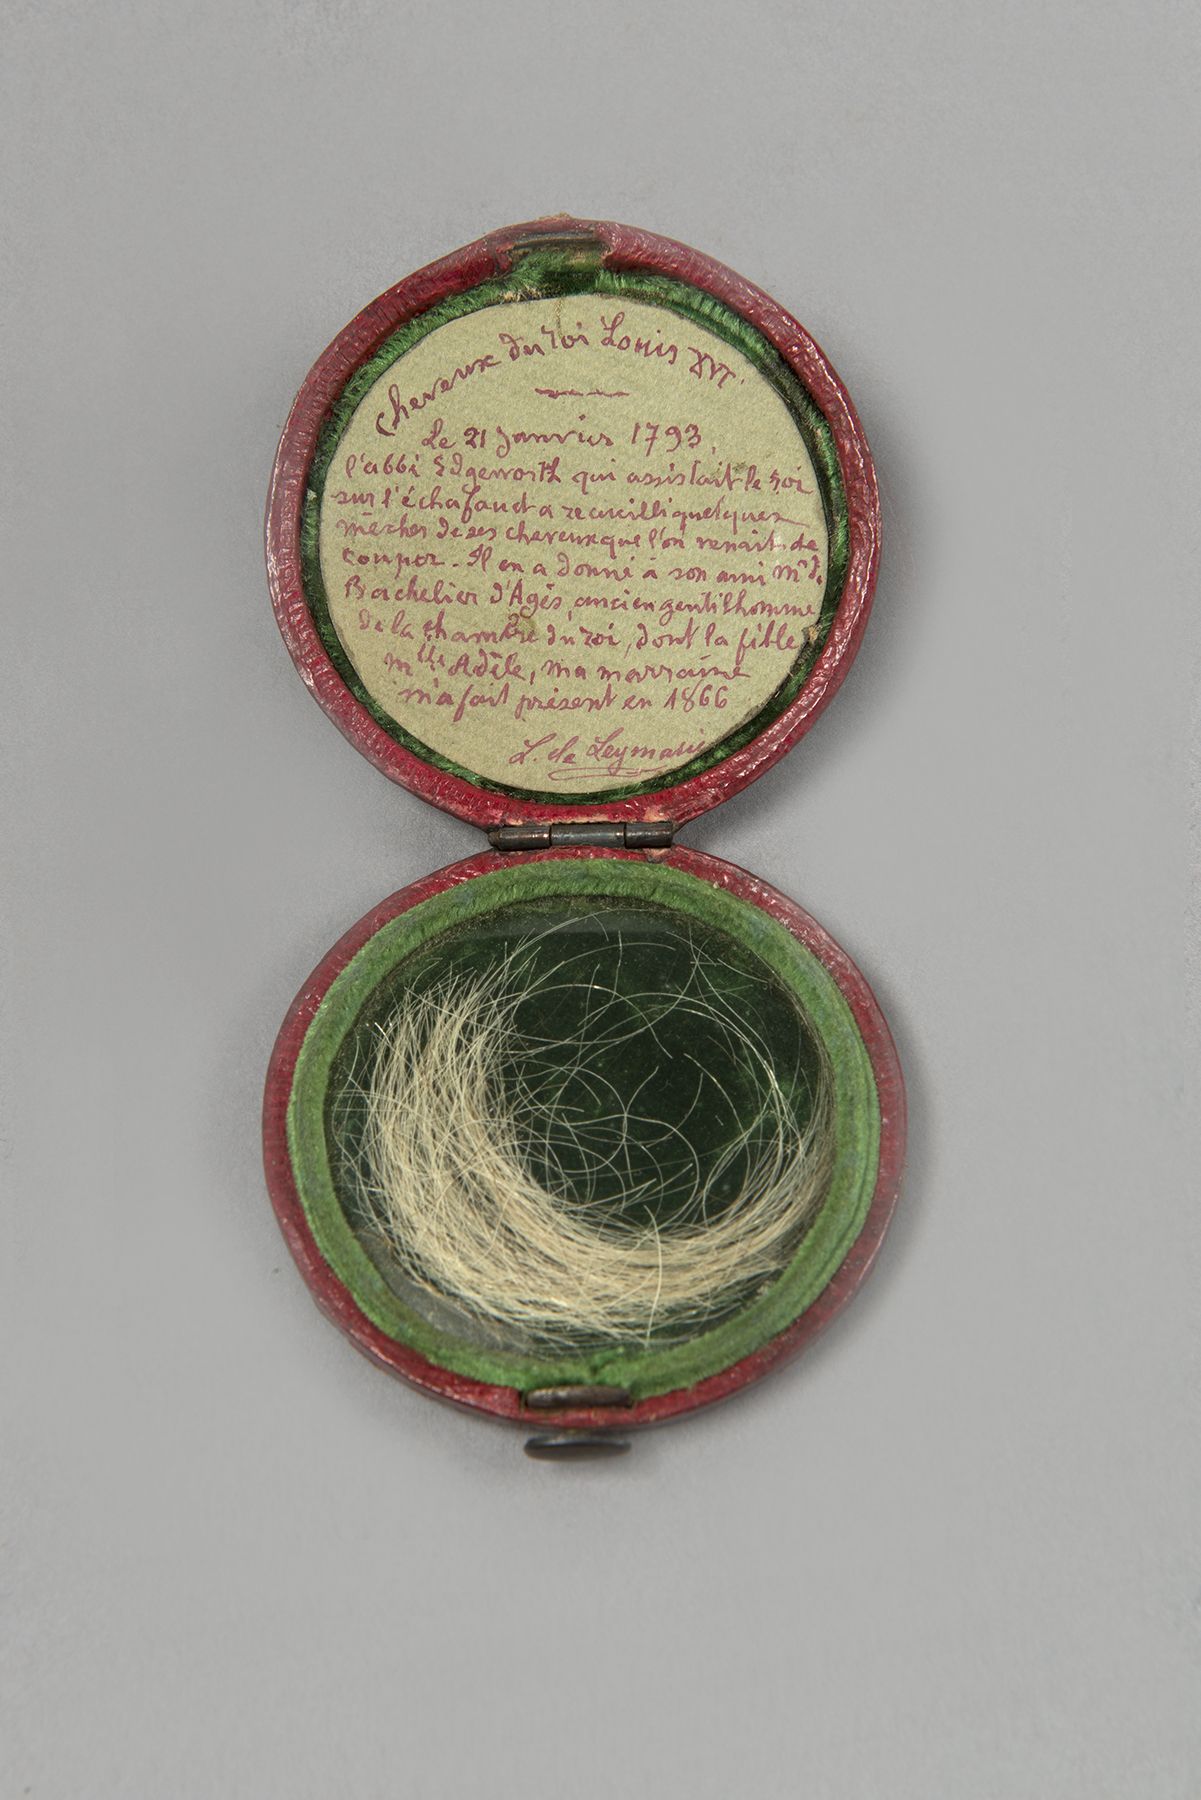 Cheveux du roi Louis XVI.
Le 21 Janvier 1793,
l'abbé Edgeworth qui assistait le roi
sur l'échafaud a recueilli quelques
mèches de ses cheveux que l'on venait de
couper. Il en a donné à son ami Mr de
Bachelier d'Agès, ancien gentilhomme
de la chambre du roi, dont la fille
Mlle Adèle, ma marraine
m'a fait présent en 1866
L. de Leymarie